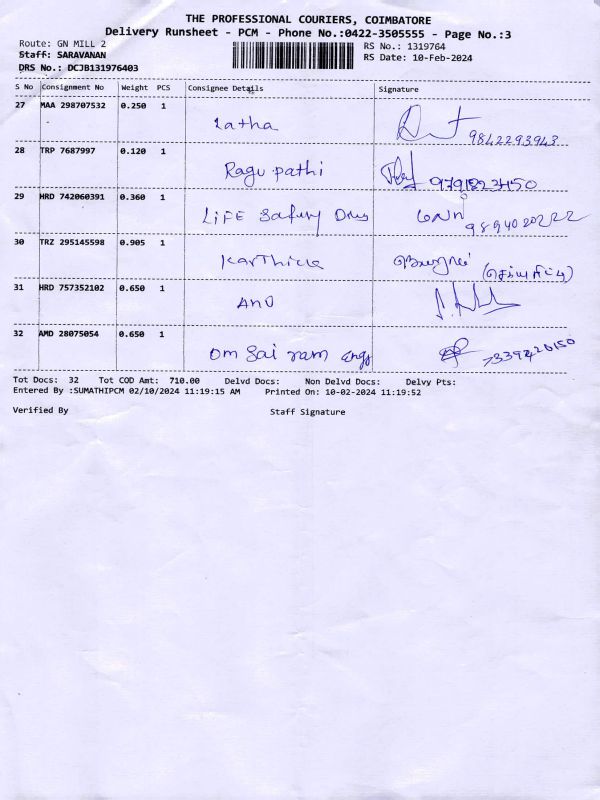 THE PROFESSIONAL COURIERS, COIMBATORE
Delivery Runsheet - PCM - Phone No.:0422-3505555 - Page No.:3
Route: GN MILL 2
RS No.: 1319764
Staff: SARAVANAN
RS Date: 10-Feb-2024
DRS No.: DCJB131976403
S No Consignment No Weight PCS Consignee Details Signature
27 MAA 298707532 0.250 1
Latha 9842293943
28 TRP 7687997 0.120 1
Ragu pathi
29 HRD 742060391 0.360 1
LiFE Safury 9894020222
30 TRZ 295145598 0.905 1
Karthick
31 HRD 757352102 0.650 1
AND
32 AMD 28075054 0.650 1
Om Sai ram Engs 7339220150
Tot Docs: 32 Tot COD Amt: 710.00 Delvd Docs: Non Delvd Docs: Delvy Pts:
Entered By :SUMATHIPCM 02/10/2024 11:19:15 AM Printed On: 10-02-2024 11:19:52
Verified By Staff Signature